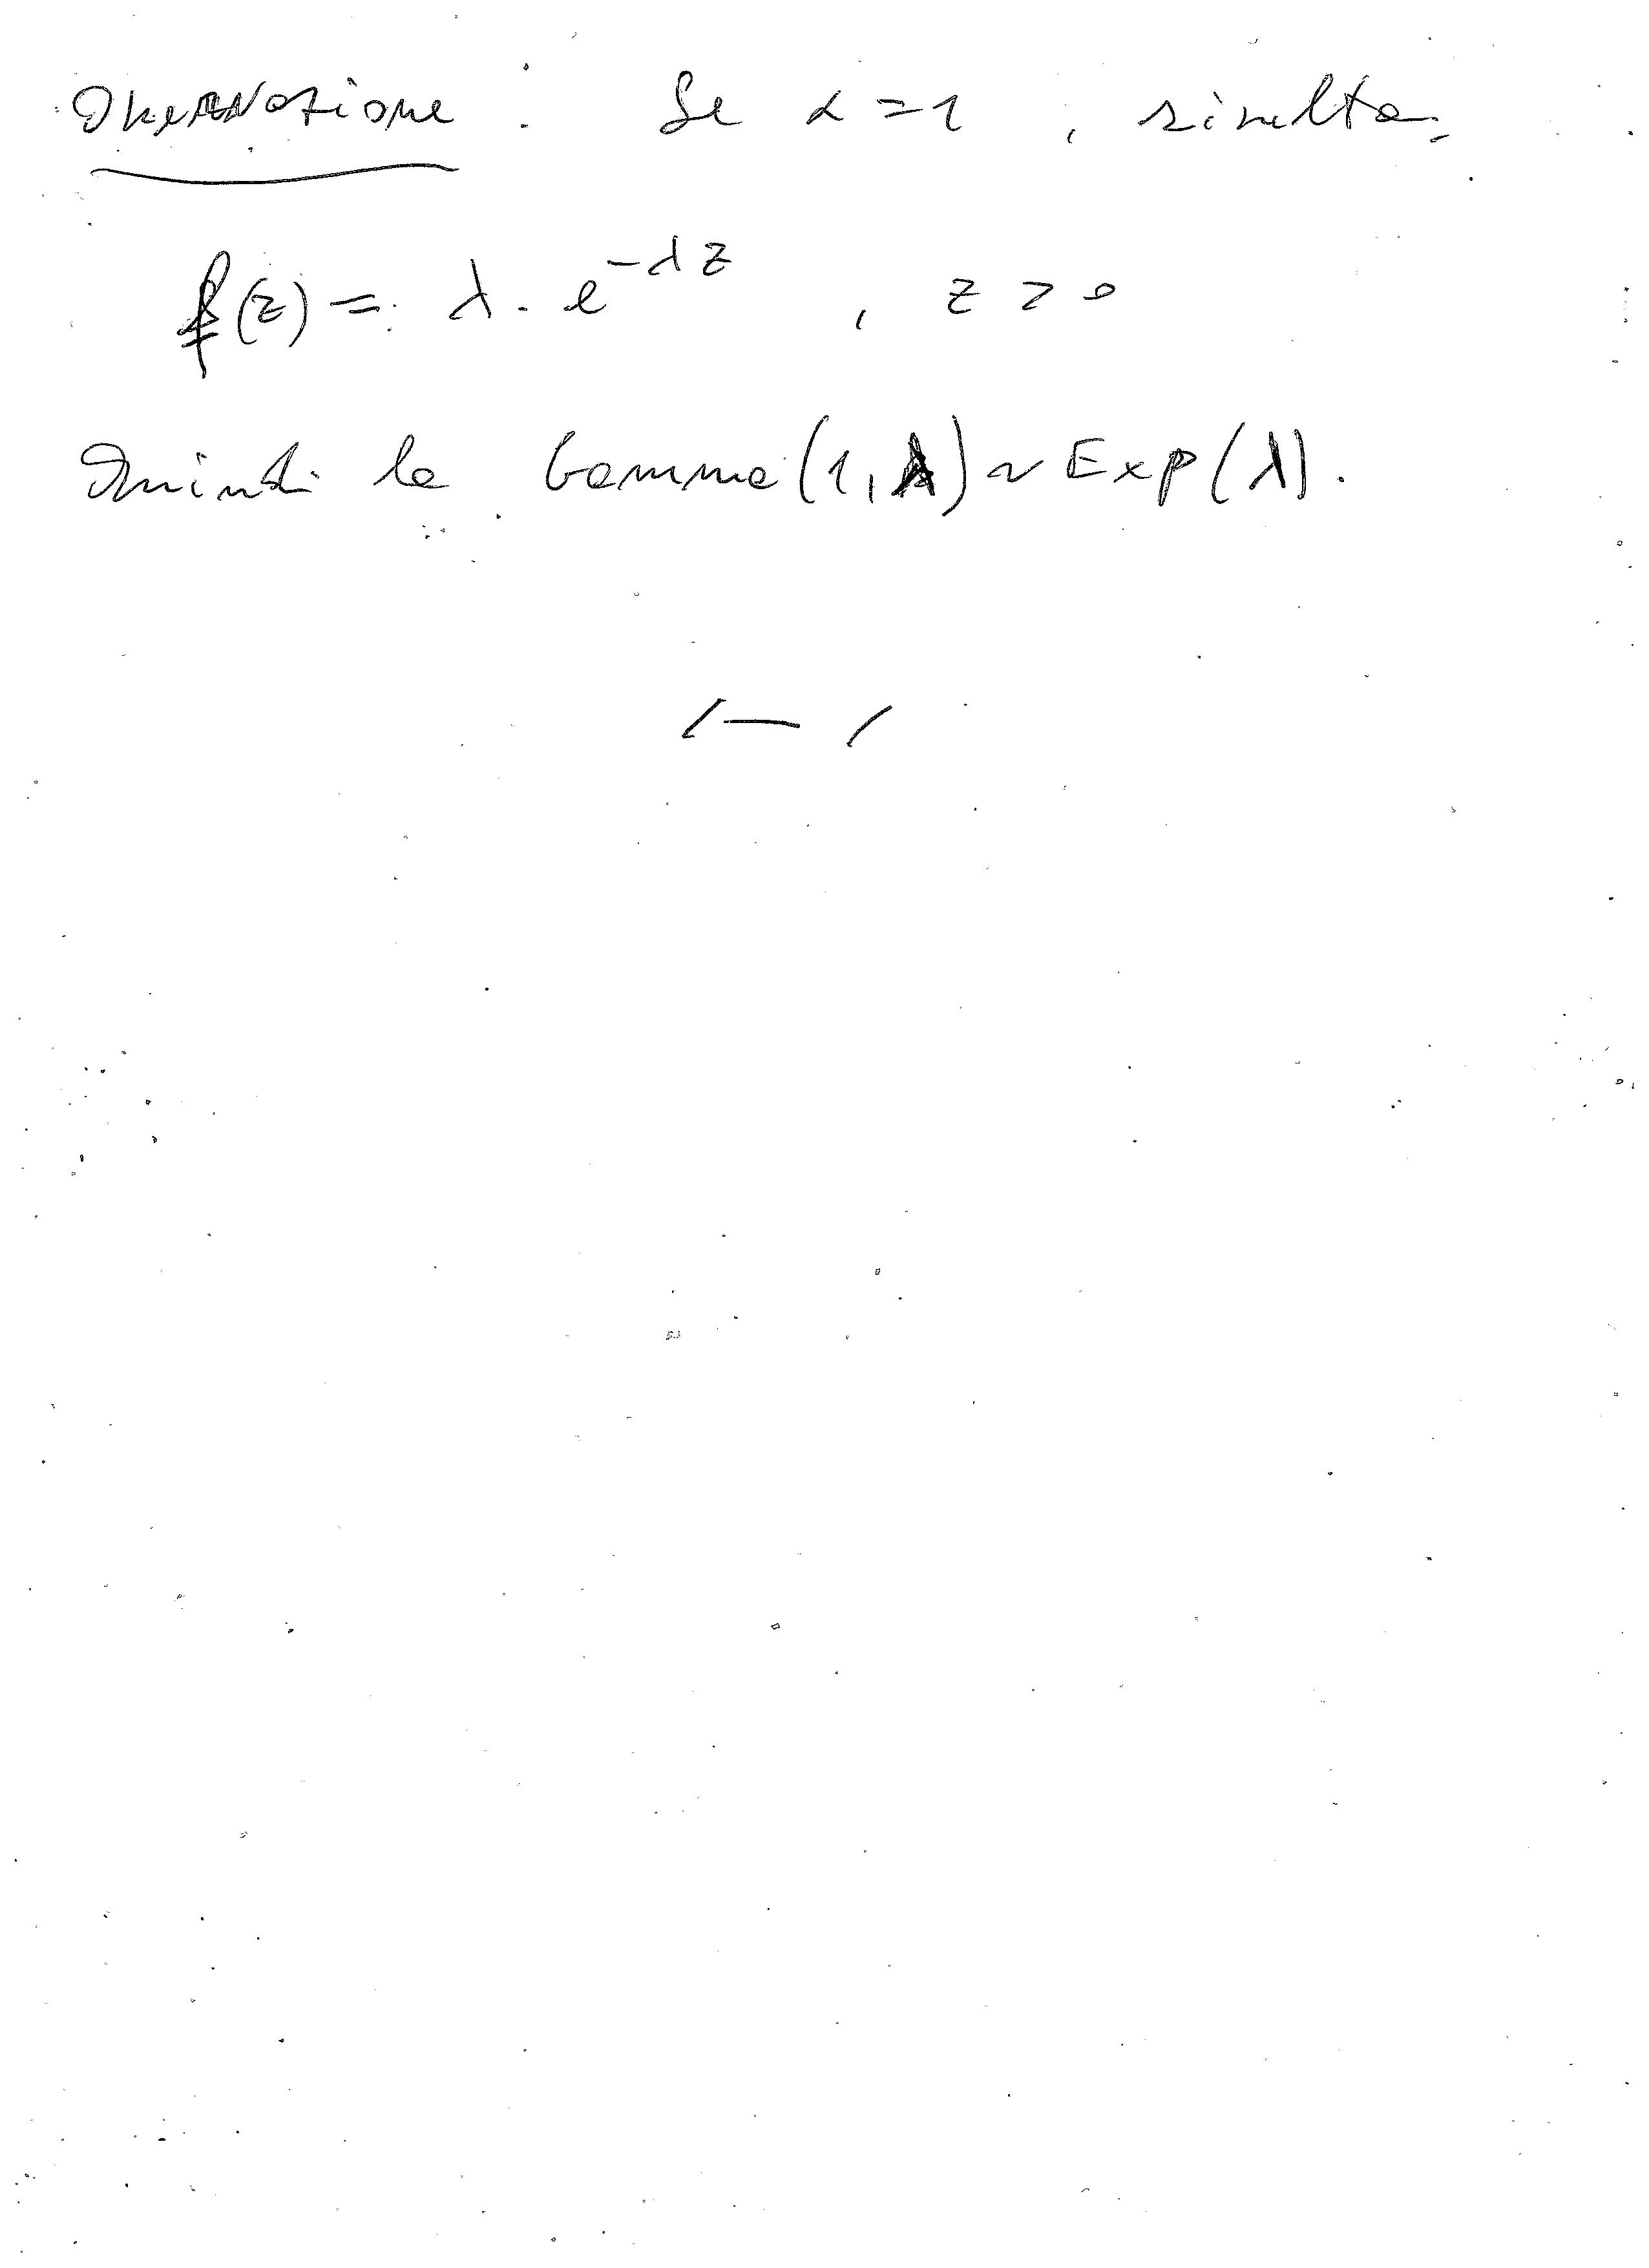 Osservazione : Se α = 1 , risulta
f(z) = λ · e^{-λz} , z > 0
Quindi la Gamma(1, λ) ~ Exp(λ).